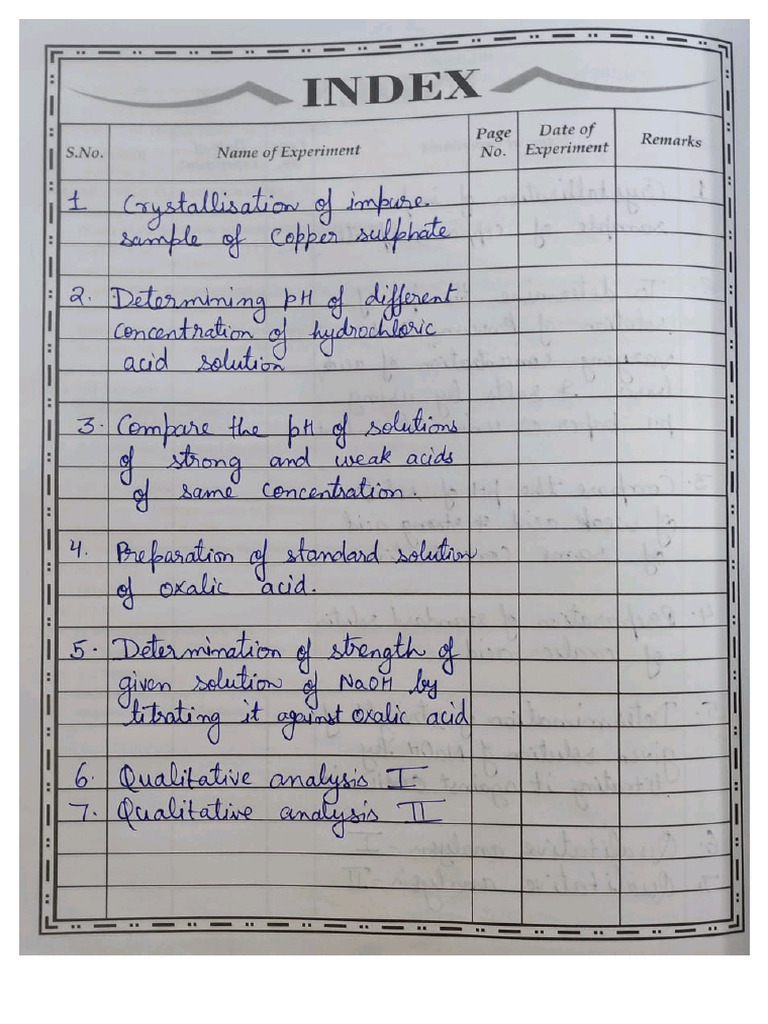 INDEX
S.No. Name of Experiment Page No. Date of Experiment Remarks
1 Crystallisation of impure
sample of Copper sulphate
2. Determining pH of different
concentration of hydrochloric
acid solution
3. Compare the pH of solutions
of strong and weak acids
of same concentration.
4. Preparation of standard solution
of oxalic acid.
5. Determination of strength of
given solution of NaOH by
titrating it against oxalic acid
6. Qualitative analysis I
7. Qualitative analysis II